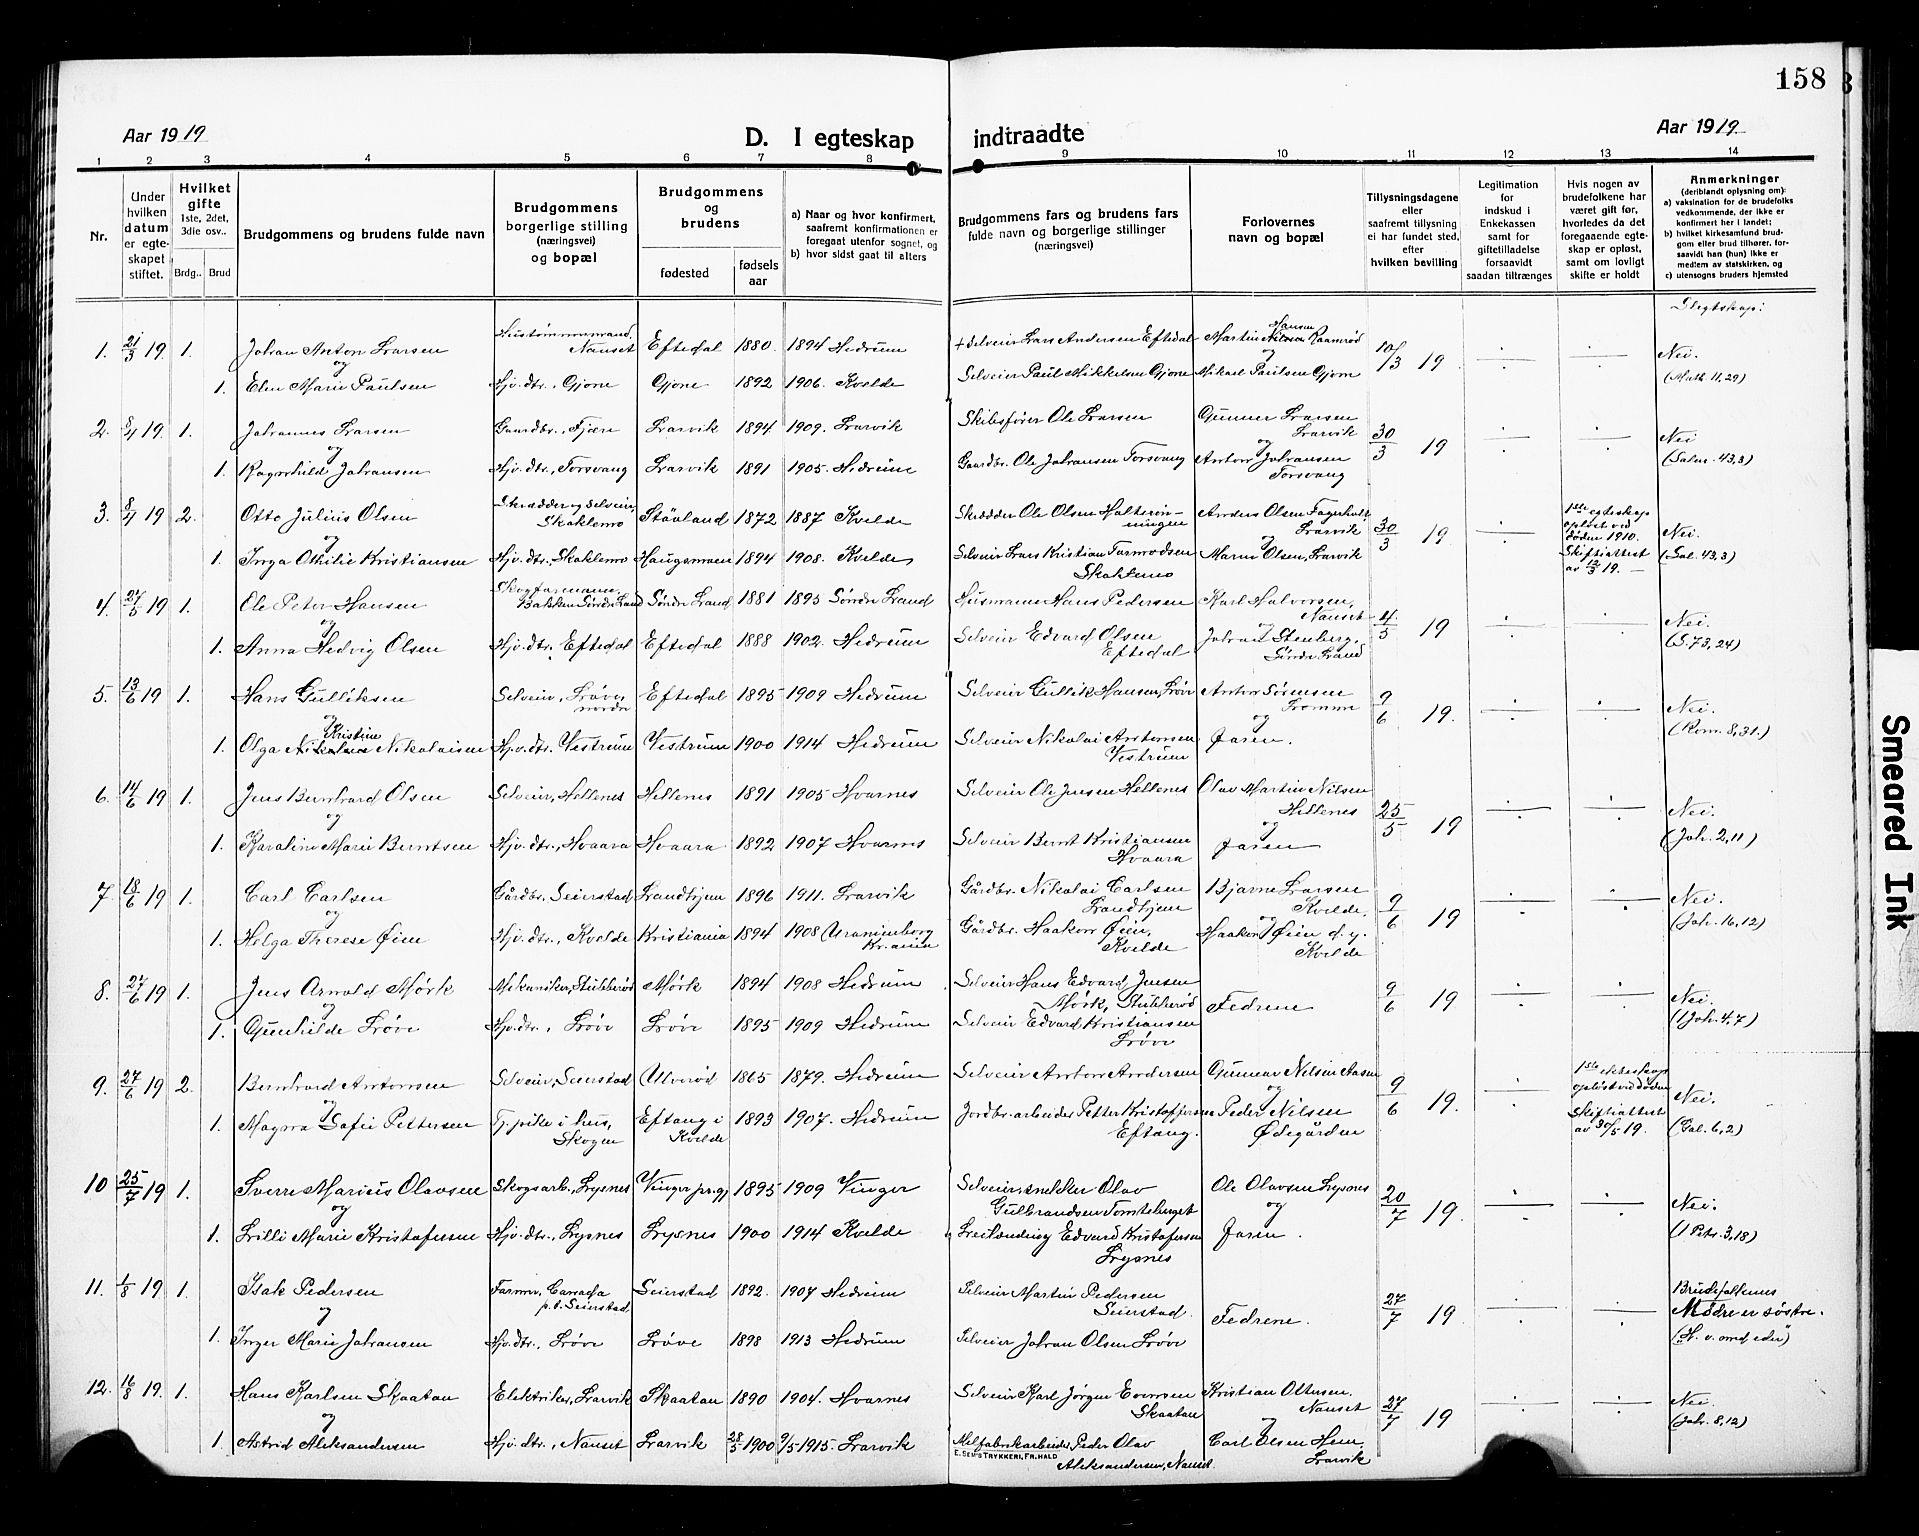 158
Aar 1919
D. I egteskap indtraadte
Aar 1919
1 2 3 4 5 6 7 8 9 10 11 12 13 14
Nr.
Under hvilken datum er egteskapet stiftet.
Hvilket gifte
1ste, 2det, 3die osv..
Brdg.. Brud
Brudgommens og brudens fulde navn
Brudgommens borgerlige stilling (næringsvei) og bopæl
Brudgommens og brudens
fødested
fødsels aar
a) Naar og hvor konfirmert, saafremt konfirmationen er foregaat utenfor sognet, og
b) hvor sidst gaat til alters
Brudgommens fars og brudens fars fulde navn og borgerlige stillinger (næringsvei)
Forlovernes navn og bopæl
Tillysningsdagene eller saafremt tillysning ei har fundet sted, efter hvilken bevilling
Legitimation for indskud i Enkekassen samt for giftetilladelse forsaavidt saadan tiltrænges
Hvis nogen av brudefolkene har været gift før, hvorledes da det foregaaende egteskap er opløst, samt om lovligt skifte er holdt
Anmerkninger
(deriblandt oplysning om):
a) vaksination for de brudefolks vedkommende, der ikke er konfirmert her i landet;
b) hvilket kirkesamfund brudgom eller brud tilhører, forsaavidt han (hun) ikke er medlem av statskirken, og
c) utensogns bruders hjemsted
Slegtskap:
1. 21/3 19 1. Johan Anton Larsen Hustømmermand, Nanset Eftedal 1880 1894 Hedrum + Selveier Lars Andersen Eftedal Martin Hansen Raamrød 10/3 19 Nei.
og
1. Elen Marie Paulsen Hjv. dtr., Gjone Gjone 1892 1906. Kvelde Selveier Paul Mikkelsen Gjone Mikael Paulsen Gjone (Math. 11,29)
2. 5/4 19 1. Johannes Larsen Gaardbr., Fjære Larvik 1894 1909. Larvik Skibsfører Ole Larsen Gunnar Larsen Larvik 30/3 19 Nei
og
1. Ragnhild Johansen Hjv. dtr., Torsvang Larvik 1891 1905. Hedrum Gaardbr. Ole Johansen Torsvang Anton Johansen Torsvang (Salm. 43,3)
3. 8/4 19 2. Otto Julius Olsen Skrædder og selveier, Skaklemo Støvland 1872 1887 Kvelde Skrædder Ole Olsen Anders Olsen Fagerholt, Larvik 30/3 19 1ste egteskap opløst ved døden 1910. Skifteattest av 12/3 19. Nei.
og
1. Inga Othilie Kristiansen Hjv. dtr., Skaklemo Haugsmoen 1894 1908. Kvelde Selveier Lars Kristian Tarmodsen Skaklemo Marin Olsen, Larvik (Sal. 43,3)
4. 27/5 19 1. Ole Peter Hansen Skogformann, Bakken Søndre Land Søndre Land 1881 1895 Søndre Land Husmann Hans Pedersen Karl Halvorsen, Nanset 4/5 19 Nei.
og
1. Anna Hedvig Olsen Hjv. dtr. Eftedal Eftedal 1888 1902. Hedrum Selveier Edvard Olsen Eftedal Johan Stenberg, Søndre Land (S. 73,24)
5. 13/6 19 1. Hans Gulliksen Selveier, Frøve nordre Eftedal 1895 1909 Hedrum Selveier Gullik Hansen, Frøve Anton Sørensen Fromm 9/6 19. Nei.
og
1. Olga Kristine Nikolaisen Hjv. dtr. Vestrum Vestrum 1900 1914 Hedrum Selveier Nikolai Antonsen Vestrum Faren. (Rom. 8,31.)
6. 14/6 19 1. Jens Bernhard Olsen Selveier, Hellenes Hellenes 1891 1905 Hvarnes Selveier Ole Jensen Hellenes Olav Martin Nilsen Hellenes 25/5 19 Nei.
og
1. Karoline Marie Berntsen Hjv. dtr., Hvaara Hvaara 1892 1907 Hvarnes Selveier Bernt Kristiansen Hvaara Faren (Joh. 2,11)
7. 18/6 19 1. Carl Carlsen Gårdbr., Seierstad Landhjem 1896 1911. Larvik Gårdbr. Nikolai Carlsen Landhjem Bjarne Larsen Kvelde, 9/6 19 Nei.
og
1. Helga Therese Øien Hjv. dtr., Kvelde Kristiania 1894 1908 Uranienborg Kr.ania Gårdbr. Haakon Øien, Kvelde Haakon Øien d.y. Kvelde (Joh. 16,12)
8. 27/6 19 1. Jens Arnold Mørk Mekaniker, Stubberød Mørk 1894 1908 Hedrum Selveier Hans Edvard Jensen Mørk, Stubberød Fedrene 9/6 19 Nei.
og
1. Gunhilde Frøve Hjv. dtr., Frøve Frøve 1895 1909 Hedrum Selveier Edvard Kristiansen Frøve (1 Joh. 4,7)
9. 27/6 19 2. Bernhard Antonsen Selveier, Seierstad Ulverød 1865 1879. Hedrum Selveier Anton Andersen Gunnar Nilsen Aasen 9/6 19. 1ste ekteskap opløst ved døden Skifteattest av 30/5 19. Nei.
og
1. Magna Sofie Pettersen Tj. pike i hus, Skogen Eftang i Kvelde 1893 1907. Hedrum Jordbr. arbeider Petter Kristoffersen Eftang. Peder Nilsen Ødegården (Gal. 6,2)
10 25/7 19 1. Sverre Marius Olavsen Skogsarb., Lysnes Vinger pr.gj. 1895 1909 Vinger Selveier, snekker Olav Gulbrandsen Tomteberget Ole Olavsen Lysnes 20/7 19. Nei.
og
1. Lilli Marie Kristofersen Hjv. dtr., Lysnes Lysnes 1900 1914 Kvelde Leilænding Edvard Kristofersen Lysnes Faren. (1 Petr. 3,18)
11. 1/8 19 1. Isak Pedersen Farmer, Canada p.t. Seierstad Seierstad 1892. 1907 Hedrum Selveier Martin Pedersen Seierstad. Fedrene. 27/7 19 Brudefolkenes Mødre er søstre.
og
1. Inger Marie Johansen Hjv. dtr., Frøve Frøve 1898 1913 Hedrum Selveier Johan Olsen Frøve (H. v. med eder")
12. 16/8 19. 1. Hans Karlsen Skaatan Elektriker, Larvik Skaatan 1890 1904. Hvarnes Selveier Karl Jørgen Evensen Skaatan Kristian Ottersen. Nanset 27/7 19 Nei.
og
1. Astrid Aleksandersen Hjv. dtr., Nanset Larvik 28/5 1900 9/5 1915. Larvik Melfabrikarbeider Peder Olav Aleksandersen, Nanset. Carl Olsen Hem, Larvik (Joh. 8,12)
E. SEMS TRYKKERI, FR.HALD
Smeared Ink